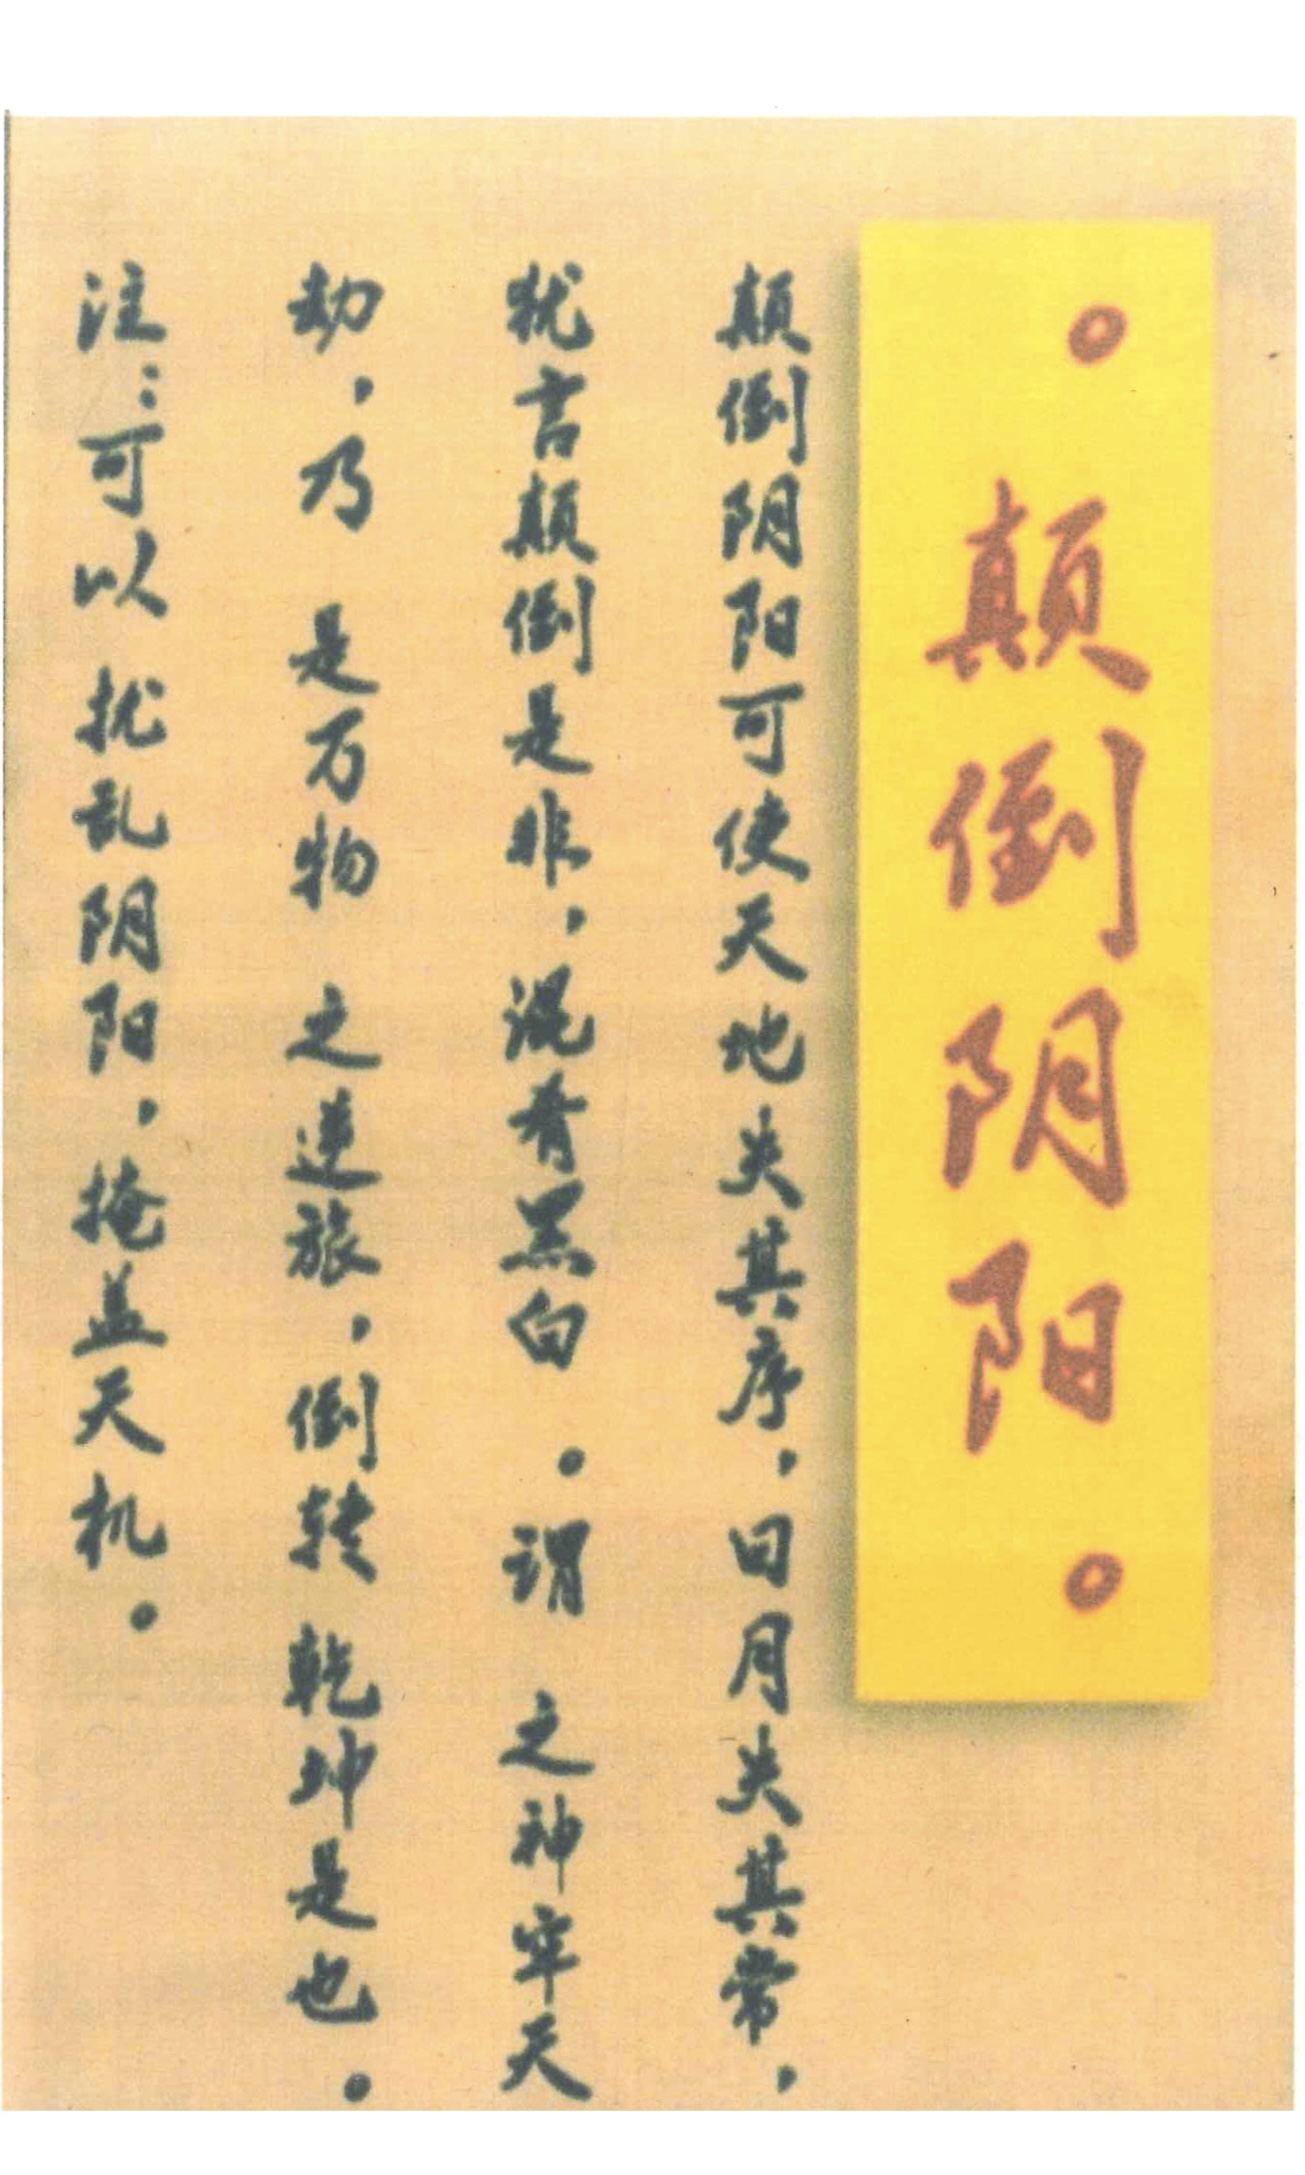 。颠倒阴阳。
颠倒阴阳可使天地失其序，日月失其常，
犹言颠倒是非，混肴黑白。谓之神牢天
劫，乃是万物之逆旅，倒转乾坤是也。
注：可以扰乱阴阳，掩盖天机。